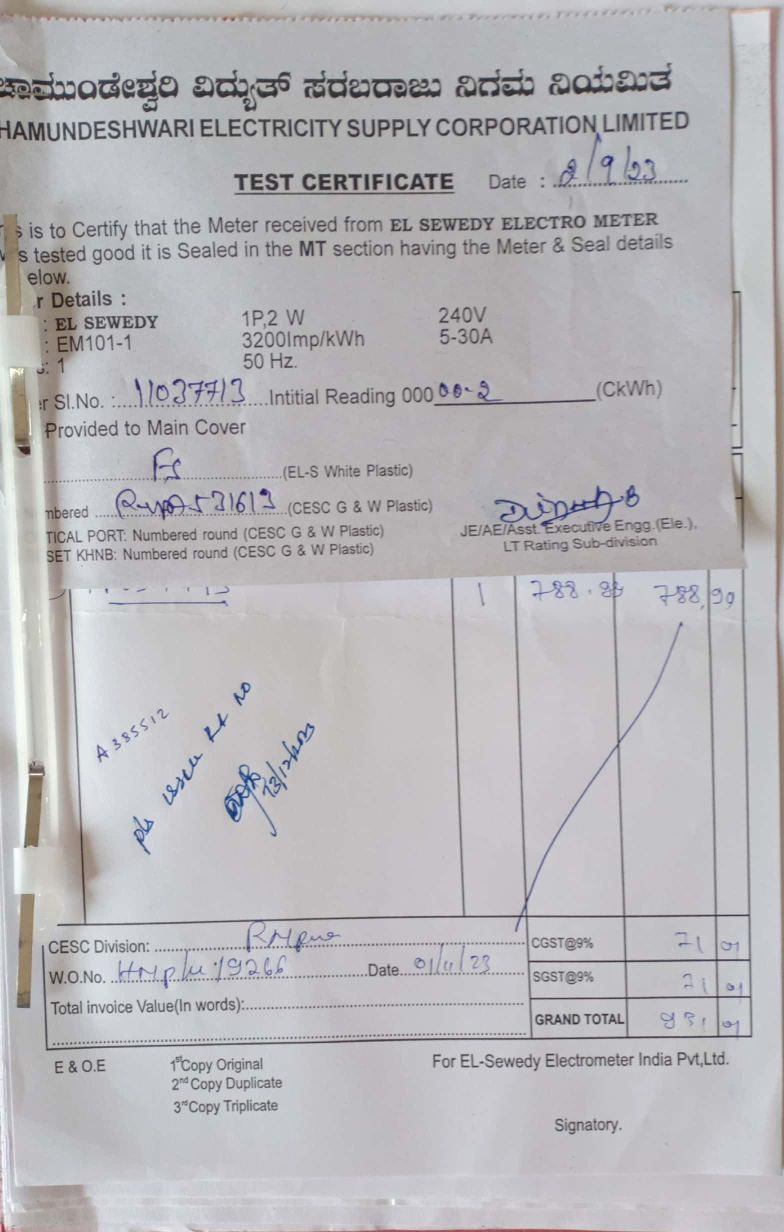 ಚಾಮುಂಡೇಶ್ವರಿ ವಿದ್ಯುತ್ ಸರಬರಾಜು ನಿಗಮ ನಿಯಮಿತ
HAMUNDESHWARI ELECTRICITY SUPPLY CORPORATION LIMITED
TEST CERTIFICATE Date : 2/9/23
s is to Certify that the Meter received from EL SEWEDY ELECTRO METER
s tested good it is Sealed in the MT section having the Meter & Seal details
elow.
r Details :
: EL SEWEDY 1P,2 W 240V
: EM101-1 3200Imp/kWh 5-30A
: 1 50 Hz.
r Sl.No. : 11037713 Intitial Reading 000 00-2 (CkWh)
Provided to Main Cover
(EL-S White Plastic)
mbered 531613 (CESC G & W Plastic)
TICAL PORT: Numbered round (CESC G & W Plastic)
SET KHNB: Numbered round (CESC G & W Plastic)
JE/AE/Asst. Executive Engg.(Ele.),
LT Rating Sub-division
1 788.88 788,90
A 385512
13/12/2023
CESC Division: CGST@9% 71 01
W.O.No. 19266 Date 01/11/23 SGST@9% 71 01
Total invoice Value(In words): GRAND TOTAL 931 01
E & O.E 1st Copy Original For EL-Sewedy Electrometer India Pvt,Ltd.
2nd Copy Duplicate
3rd Copy Triplicate
Signatory.